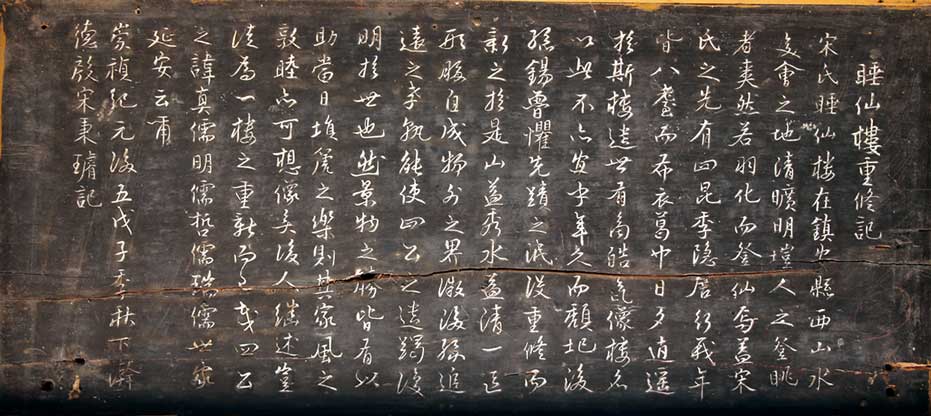 睡仙樓重修記
宋氏睡仙樓在鎮安縣西山水
交會之地清曠明塏人之登眺
者爽然若羽化而登仙焉蓋宋
氏之先有四昆季隱居行義年
皆八耋而布衣葛巾日夕逍遙
於斯樓遺世有商皓氣像樓名
以此不亦宜乎年久而頹圮後
孫錫曾懼先蹟之泯沒重修而
新之於是山益秀水益清一區
形勝自成物外之界微後孫追
遠之孝孰能使四公之遺躅復
明於世也然景物之勝皆有以
助當日塤篪之樂則其家風之
敦睦亦可想像矣後人繼述豈
徒爲一樓之重新而已哉四公
之諱真儒明儒哲儒瑞儒世家
延安云爾
崇禎紀元後五戊子季秋下澣
德殷宋秉璿記